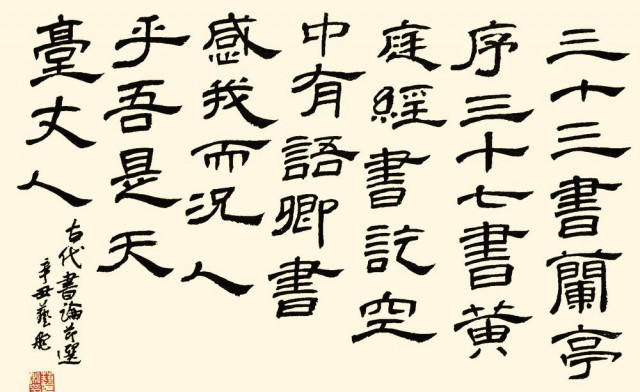 三十三書蘭亭
序三十七書黃
庭經書訖空
中有語卿書
感我而況人
乎吾是天
臺丈人
古代書論节選
辛丑藝